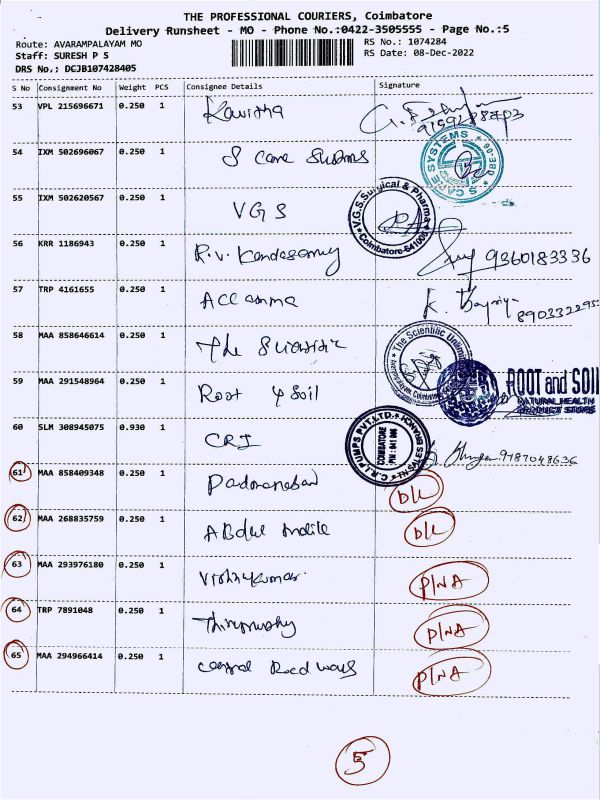 THE PROFESSIONAL COURIERS, Coimbatore
Delivery Runsheet - MO - Phone No.:0422-3505555 - Page No.:5
Route: AVARAMPALAYAM MO
RS No.: 1074284
Staff: SURESH P S
RS Date: 08-Dec-2022
DRS No.: DCJB107428405
S No Consignment No Weight PCS Consignee Details Signature
53 VPL 215696671 0.250 1 Kavitha
54 IXM 502696067 0.250 1 S Care Systems
S CARE SYSTEMS
55 IXM 502620567 0.250 1 VGS
V.G.S. Surgical & Pharma
Coimbatore-641006
56 KRR 1186943 0.250 1 R.V. Kandasamy 9360183336
57 TRP 4161655 0.250 1
58 MAA 858646614 0.250 1 The
The Scientific
59 MAA 291548964 0.250 1 Root & Soil
ROOT and SOIL
NATURAL HEALTH
PRODUCT STORE
60 SLM 308945075 0.930 1 CRI 9787048636
C.R.I. PUMPS PVT. LTD.
TN SALES BRANCH
COIMBATORE
61 MAA 858409348 0.250 1 D/L
62 MAA 268835759 0.250 1 Abdul D/L
63 MAA 293976180 0.250 1 Vishnukumar P/NA
64 TRP 7891048 0.250 1 P/NA
65 MAA 294966414 0.250 1 P/NA
5